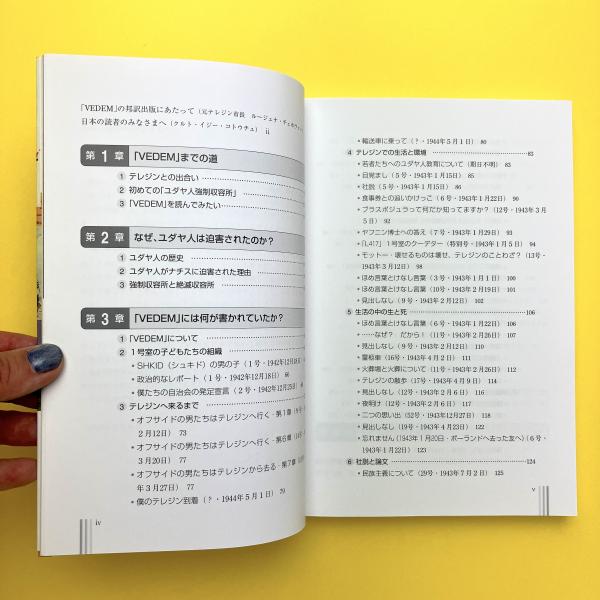 「VEDEM」の邦訳出版にあたって（元テレジン市長　ルージェナ・チェ
日本の読者のみなさまへ（クルト・イジー・コトウチュ）　ii
第1章　「VEDEM」までの道
① テレジンとの出会い
② 初めての「ユダヤ人強制収容所」
③ 「VEDEM」を読んでみたい
第2章　なぜ、ユダヤ人は迫害されたのか？
① ユダヤ人の歴史
② ユダヤ人がナチスに迫害された理由
③ 強制収容所と絶滅収容所
第3章　「VEDEM」には何が書かれていたか？
① 「VEDEM」について
② 1号室の子どもたちの組織
・SHKID（シュキド）の男の子（1号・1942年12月18日
・政治的なレポート（1号・1942年12月18日）　66
・僕たちの自治会の発足宣言（2号・1942年12月25日
③ テレジンへ来るまで
・オフサイドの男たちはテレジンへ行く・第1章（9号・
2月12日）　73
・オフサイドの男たちはテレジンへ行く・第6章（14号・
3月20日）　77
・オフサイドの男たちはテレジンから去る・第7章（
年3月27日）　77
・僕のテレジン到着（？・1944年5月1日）　79
iv
・輸送車に乗って（？・1944年5月1日）　80
④ テレジンでの生活と環境　83
・若者たちへのユダヤ人教育について（期日不明）　83
・目覚まし（5号・1943年1月15日）　85
・社説（5号・1943年1月15日）　88
・食事券との追いかけっこ（6号・1943年1月22日）　90
・プラスポジュラって何だか知ってますか？（12号・1943年3月
5日）　92
・ヤフニン博士への答え（7号・1943年1月29日）　93
・「L417」1号室のクーデター（特別号・1943年1月5日）　94
・モットー・壊せるものは壊せ、テレジンのことわざ？（13号・
1943年3月12日）　98
・ほめ言葉とけなし言葉（3号・1943年1月1日）　100
・ほめ言葉とけなし言葉（4号・1943年1月8日）　101
・見出しなし（9号・1943年2月12日）　102
⑤ 生活の中の生と死　106
・ほめ言葉とけなし言葉（6号・1943年1月22日）　106
・……なぜ？　だから！（？・1943年）　107
・見出しなし（9号・1943年2月12日）　110
・霊柩車（16号・1943年4月2日）　111
・火葬場と火葬について（11号・1943年2月26日）　111
・テレジンの散歩（17号・1943年4月9日）　114
・見出しなし（8号・1943年2月6日）　116
・夜明け（12号・1943年2月6日）　116
・二つの思い出（52号・1943年12月27日）　118
・見出しなし（4号・1943年1月8日）　119
・忘れません（1943年1月20日・ポーランドへ去った友へ）（6号・
1943年1月22日）　123
⑥ 社説と論文　124
・民族主義について（29号・1943年7月2日）　125
v